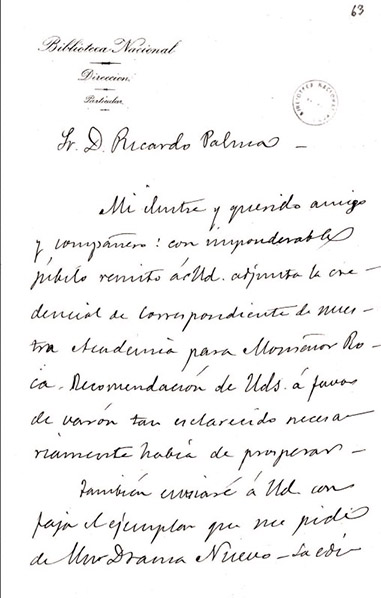 63
Biblioteca Nacional
Direccion
Particular
BIBLIOTECA NACIONAL
Sr. D. Ricardo Palma –
Mi ilustre y querido amigo
y compañero: con imponderable
júbilo remito á Ud. adjunta la cre-
dencial de correspondiente de nues-
tra Academia para Monseñor Ro-
ca. Recomendación de Uds. á favor
de varón tan esclarecido necesa-
riamente había de prosperar –
También enviaré á Ud. con
faja el ejemplar que me pide
de Un Drama Nuevo – La edi-